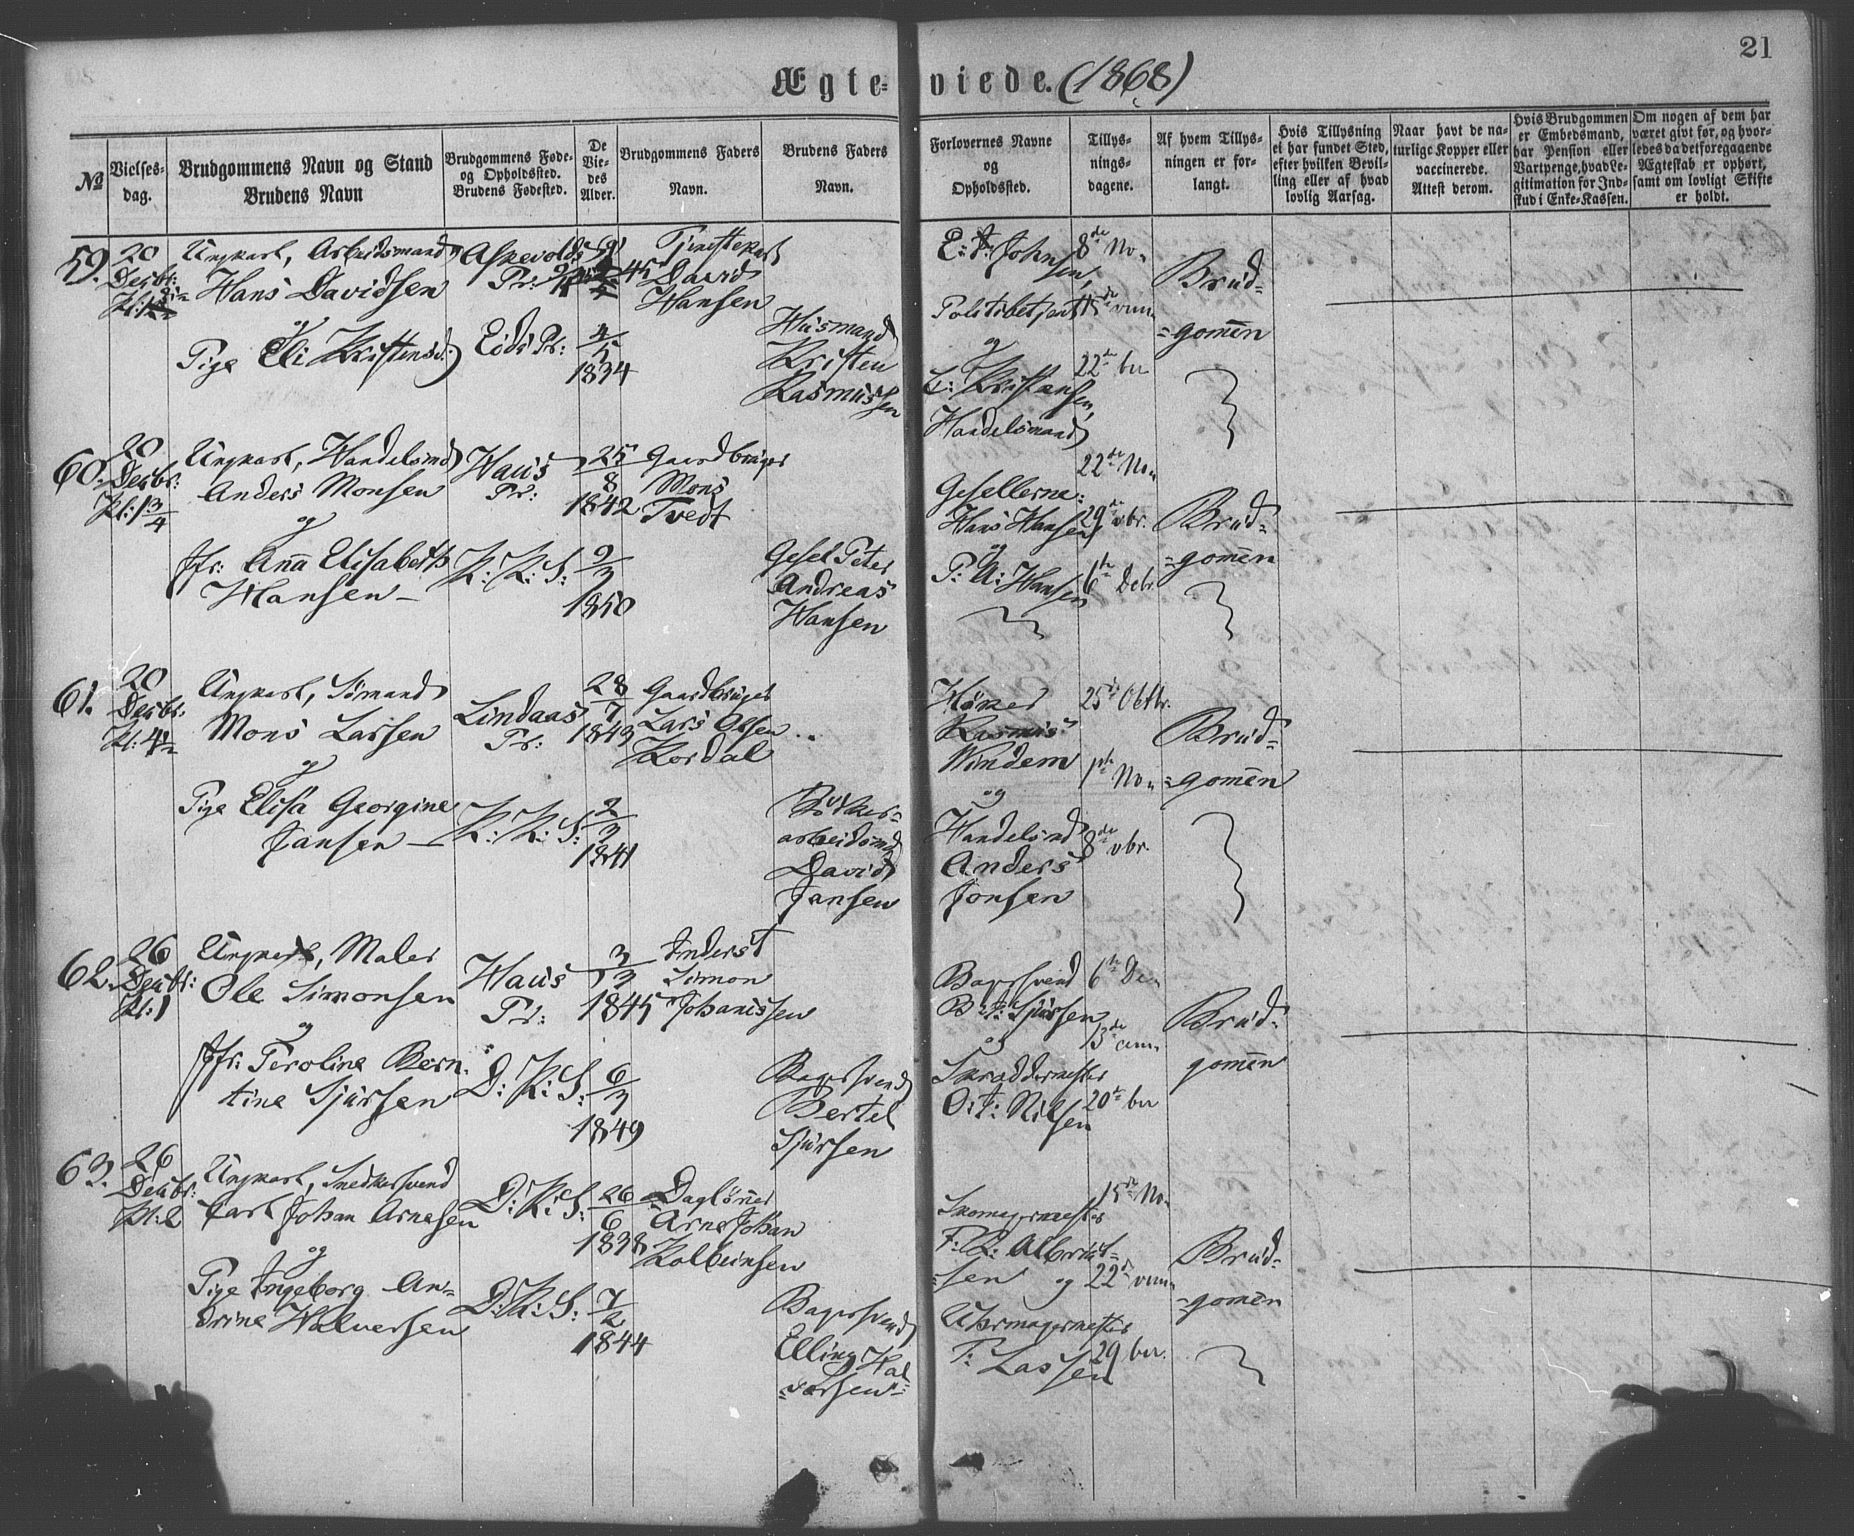 21
Ægte-viede. (1868)
№
Vielses-
dag.
Brudgommens Navn og Stand
Brudens Navn
Brudgommens Føde-
og Opholdssted.
Brudens Fødested.
De
Vie-
des
Alder.
Brudgommens Faders
Navn.
Brudens Faders
Navn.
Forlovernes Navne
og
Opholdssted.
Tillys-
nings-
dagene.
Af hvem Tillys-
ningen er for-
langt.
Hvis Tillysning
ei har fundet Sted,
efter hvilken Bevil-
ling eller af hvad
lovlig Aarsag.
Naar havt de na-
turlige Kopper eller
vaccinerede.
Attest derom.
Hvis Brudgommen
er Embedsmand,
har Pension eller
Vartpenge, hvad Le-
gitimation for Ind-
skud i Enke-Kassen.
Om nogen af dem har
været givt før, og hvor-
ledes da det foregaaende
Ægteskab er ophørt,
samt om lovligt Skifte
er holdt.
59.
20
Desbr:
Ungkarl, Arbeidsmand
Hans Davidsen
og
Pige Eli Kristensd:
Askevold
Pr:
Eids Pr:
45
4/5
1834
Tjenestekarl
David
Hansen
Husmand
Kristen
Rasmussen
E: T: Johnsen,
Politibetjent
og
L: Kristansen,
Handelsmand
8de No-
15de vem-
22de ber
Brud-
=gomen
60.
20
Desbr:
Kl: 1 3/4
Ungkarl, Handelsmd
Anders Monsen
og
Jfr: Anna Elisabeth
Hansen
Haus
Pr:
K: K: S:
25/8
1842
9/3
1850
Gaardbruger
Mons
Tvedt
Gesel Peter
Andreas
Hansen
Gesellerne:
Hans Hansen
og
P: A: Hansen
22de No-
29de vbr.
6te Debr
Brud-
=gomen
61.
20
Desbr:
Kl: 4 1/2
Ungkarl, Sømand
Mons Larsen
og
Pige Elisa Georgine
Jansen
Lindaas
Pr:
K: K: S:
28/7
1843
2/3
1841
Gaardbruger
Lars Olsen
Kordal
arbeidsmd
David
Jansen
Høker
Rasmus
Windem
og
Handelsmd
Anders
Jonsen
25de Oktbr.
1ste No-
8de vbr.
Brud-
=gomen
62.
26
Desbr:
Kl: 1
Ungkarl, Maler
Ole Simonsen
og
Jfr: Peroline Bern-
tine Sjursen
Haus
Pr:
D: K: S:
3/3
1845
6/3
1849
Inderst
Simon
Johannssen
Bagersvend
Bertel
Sjursen
Bagersvend
B: A: Sjursen
og
Skreddermester
O: T: Nilsen
6te De-
13de cem-
20de ber
Brud-
gomen
63.
26
Desbr:
Kl: 2
Ungkarl, Snedkersvend
Carl Johan Arnesen
og
Pige Ingeborg An-
drine Halversen
D: K: S:
D: K: S:
26/6
1838
7/2
1844
Dagløner
Arne Johan
Kolbeinsen
Bagersvend
Elling Hal-
=vorsen
Skomagermester
F: R: Albrigt-
=sen og
Uhrmagermester
P: Lassen
15de No-
22de vem-
29 ber.
Brud-
=gomen